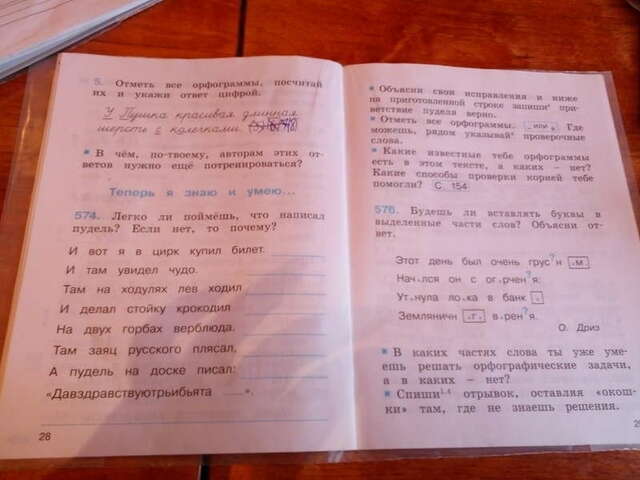 5. Отметь все орфограммы, посчитай
их и укажи ответ цифрой.
У Пушка красивая длинная
шерсть с колечками.
▪ В чём, по-твоему, авторам этих от-
ветов нужно ещё потренироваться?
Теперь я знаю и умею...
574. Легко ли поймёшь, что написал
пудель? Если нет, то почему?
И вот я в цирк купил билет.
И там увидел чудо.
Там на ходулях лев ходил
И делал стойку крокодил
На двух горбах верблюда.
Там заяц русского плясал,
А пудель на доске писал:
«Давздравствуютрьибьята ___».
28
▪ Объясни свои исправления и ниже
на приготовленной строке запиши при-
ветствие пуделя верно.
▪ Отметь все орфограммы. . или . Где
можешь, рядом указывай проверочные
слова.
▪ Какие известные тебе орфограммы
есть в этом тексте, а каких – нет?
Какие способы проверки корней тебе
помогли? С. 154
575. Будешь ли вставлять буквы в
выделенные части слов? Объясни от-
вет.
Этот день был очень грус?н .м.
Нач.лся он с ог.рчен?я:
Ут.нула ло.ка в банк .
Земляничн .г. в.рен?я.
О. Дриз
▪ В каких частях слова ты уже уме-
ешь решать орфографические задачи,
а в каких – нет?
▪ Спиши отрывок, оставляя «окош-
ки» там, где не знаешь решения.